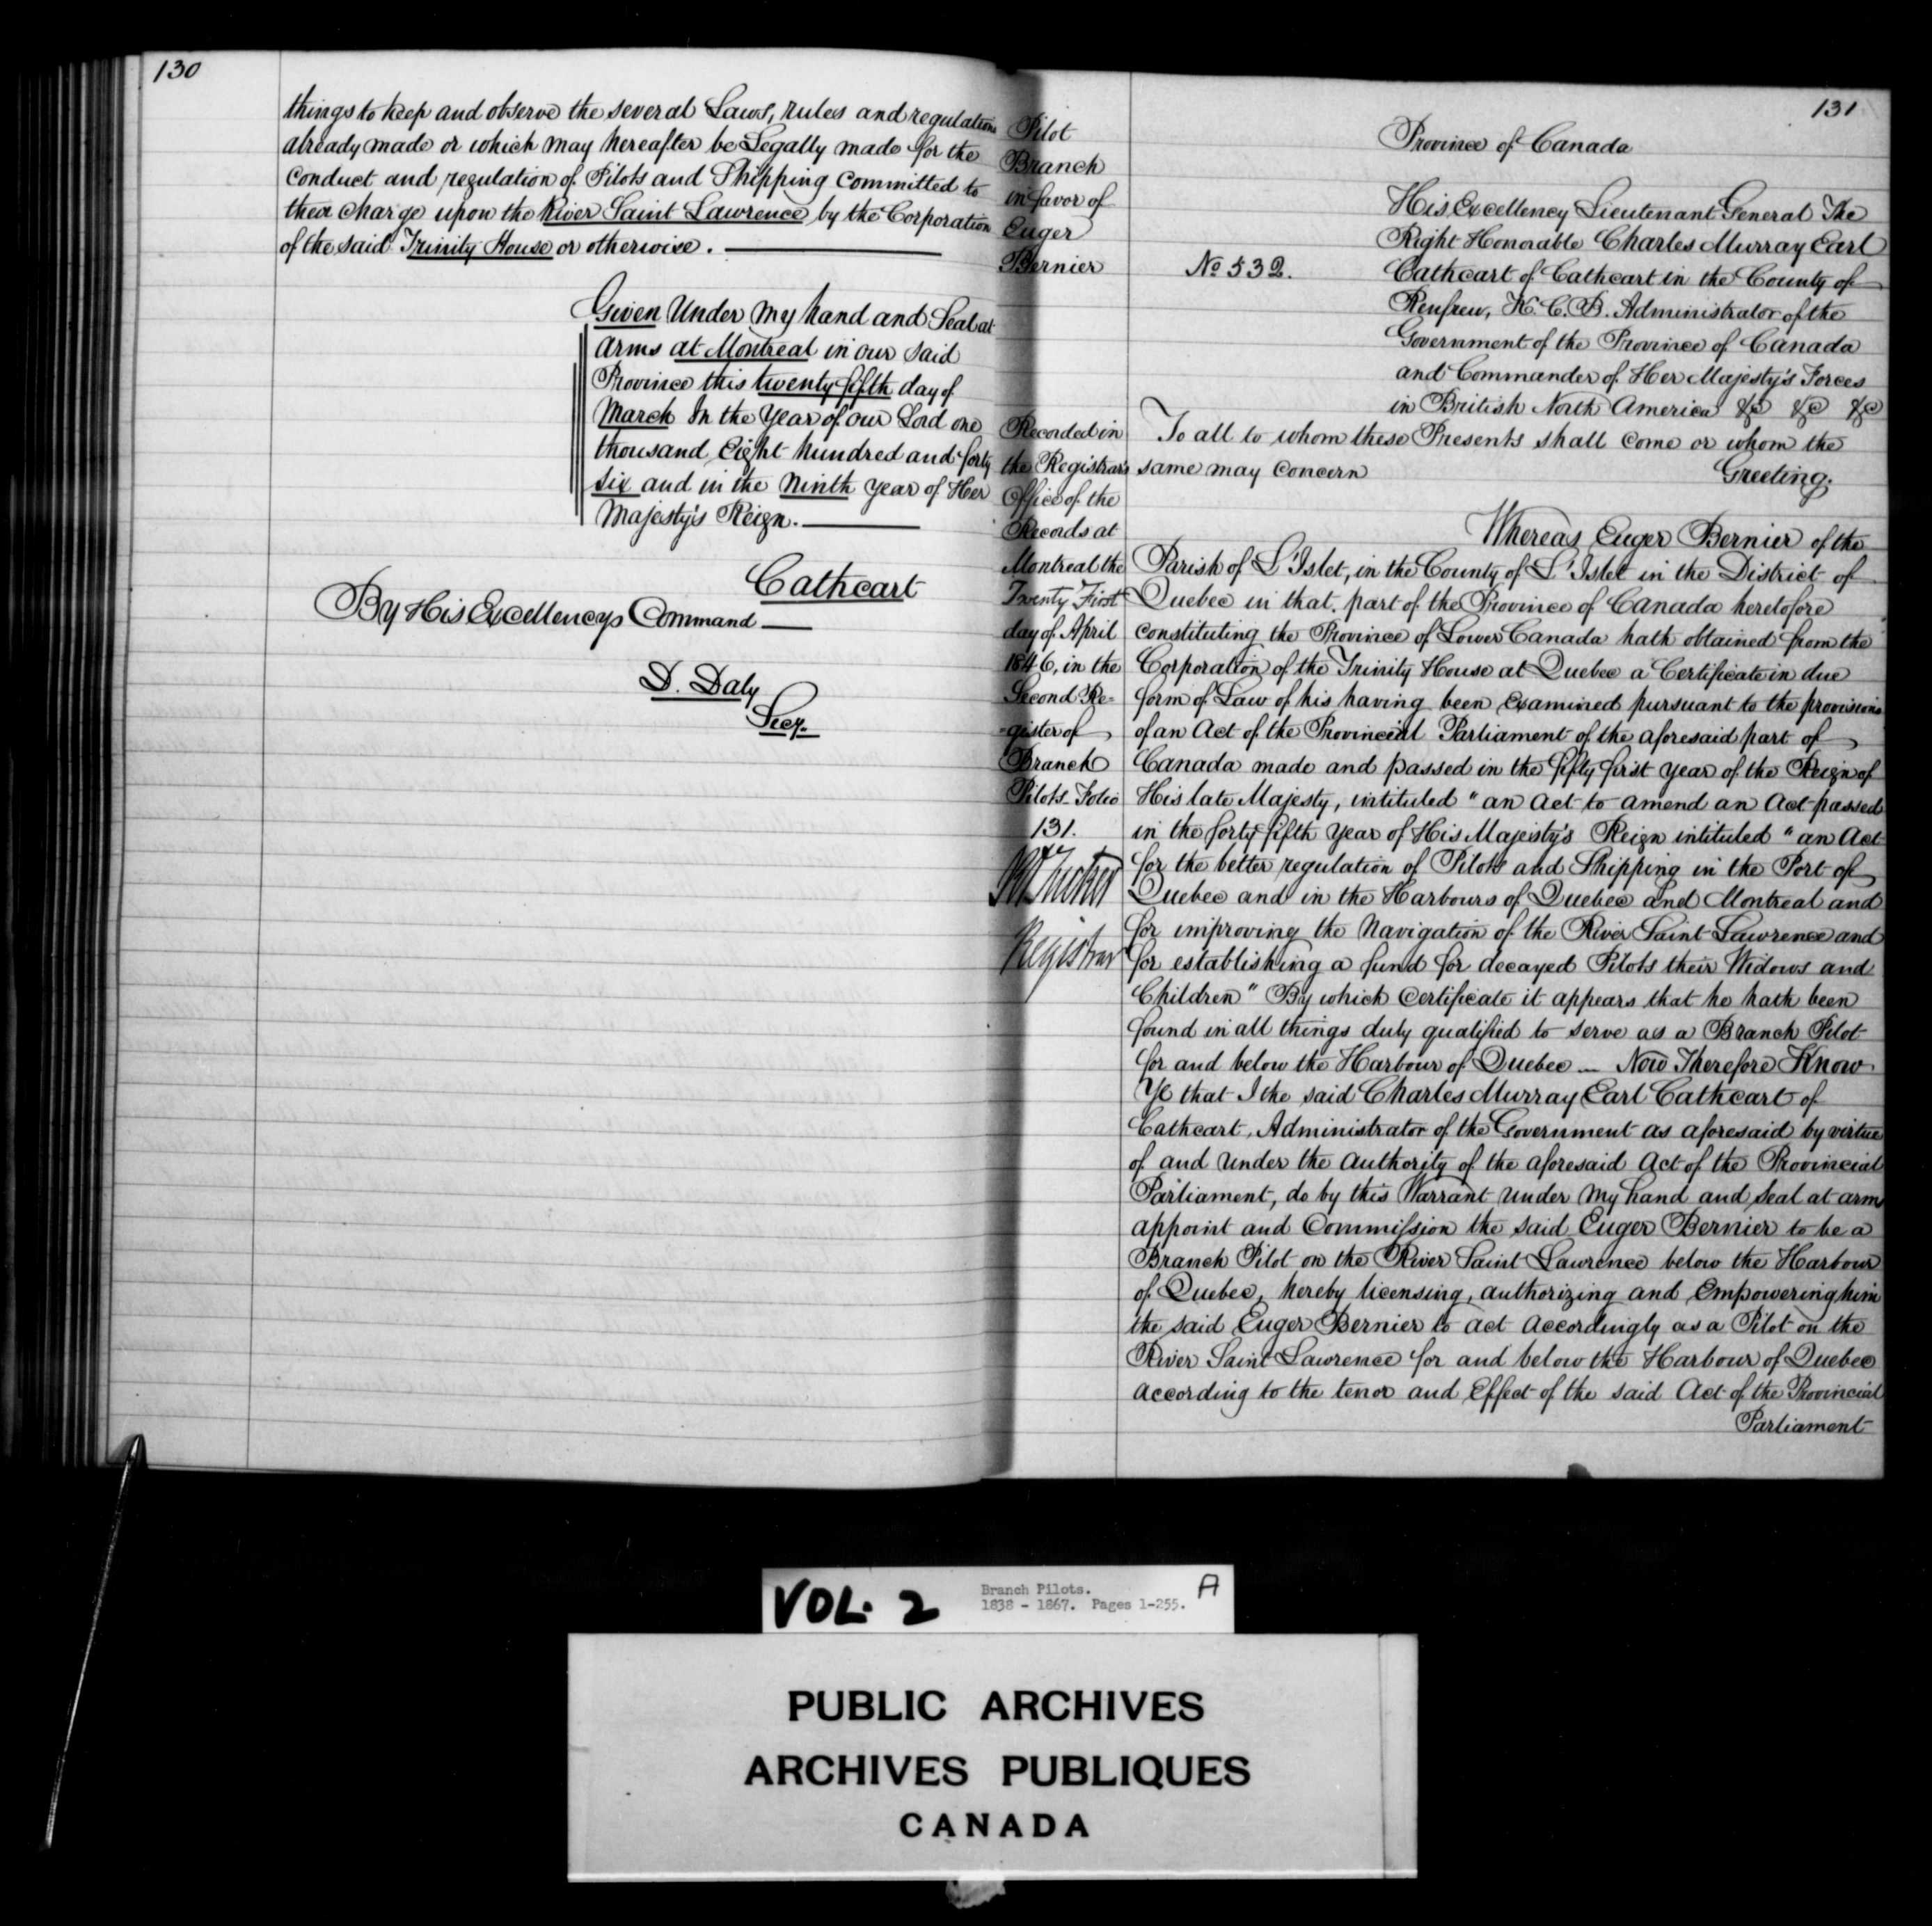 130
things to keep and observe the several Laws, rules and regulations
already made or which may hereafter be Legally made for the
conduct and regulation of Pilots and Shipping committed to
their charge upon the River Saint Lawrence by the Corporation
of the said Trinity House or otherwise.
Given Under My hand and Seal at
arms at Montreal in our said
Province this twenty fifth day of
March In the Year of our Lord one
thousand Eight hundred and forty
six and in the Ninth year of Her
Majesty's Reign.
Cathcart
By His Excellencys Command
D. Daly
Secy.
131
Pilot
Branch
in favor of
Euger
Bernier
No 532.
Recorded in
the Registrar's
Office of the
Records at
Montreal the
Twenty First
day of April
1846, in the
Second Re=
=gister of
Branch
Pilots Folio
131.
Registrar
Province of Canada
His Excellency Lieutenant General The
Right Honorable Charles Murray Earl
Cathcart of Cathcart in the County of
Renfrew, K. C. B. Administrator of the
Government of the Province of Canada
and Commander of Her Majesty's Forces
in British North America &c &c &c
To all to whom these Presents shall come or whom the
same may concern Greeting.
Whereas Euger Bernier of the
Parish of L'Islet, in the County of L'Islet in the District of
Quebec in that part of the Province of Canada heretofore
constituting the Province of Lower Canada hath obtained from the
Corporation of the Trinity House at Quebec a Certificate in due
form of Law of his having been Examined pursuant to the provisions
of an Act of the Provincial Parliament of the aforesaid part of
Canada made and passed in the fifty first year of the Reign of
His late Majesty, intituled "an Act to amend an Act passed
in the forty fifth year of His Majesty's Reign intituled "an Act
for the better regulation of Pilots and Shipping in the Port of
Quebec and in the Harbours of Quebec and Montreal and
for improving the Navigation of the River Saint Lawrence and
for establishing a fund for decayed Pilots their Widows and
Children" By which Certificate it appears that he hath been
found in all things duly qualified to serve as a Branch Pilot
for and below the Harbour of Quebec — Now Therefore Know
Ye that I the said Charles Murray Earl Cathcart of
Cathcart, Administrator of the Government as aforesaid by virtue
of and under the authority of the aforesaid Act of the Provincial
Parliament, do by this Warrant under My hand and Seal at arms
appoint and Commission the said Euger Bernier to be a
Branch Pilot on the River Saint Lawrence below the Harbour
of Quebec, hereby licensing, authorizing and Empowering him
the said Euger Bernier to act accordingly as a Pilot on the
River Saint Lawrence for and below the Harbour of Quebec
according to the tenor and Effect of the said Act of the Provincial
Parliament
VOL. 2
Branch Pilots.
1838 - 1867. Pages 1-255.
A
PUBLIC ARCHIVES
ARCHIVES PUBLIQUES
CANADA